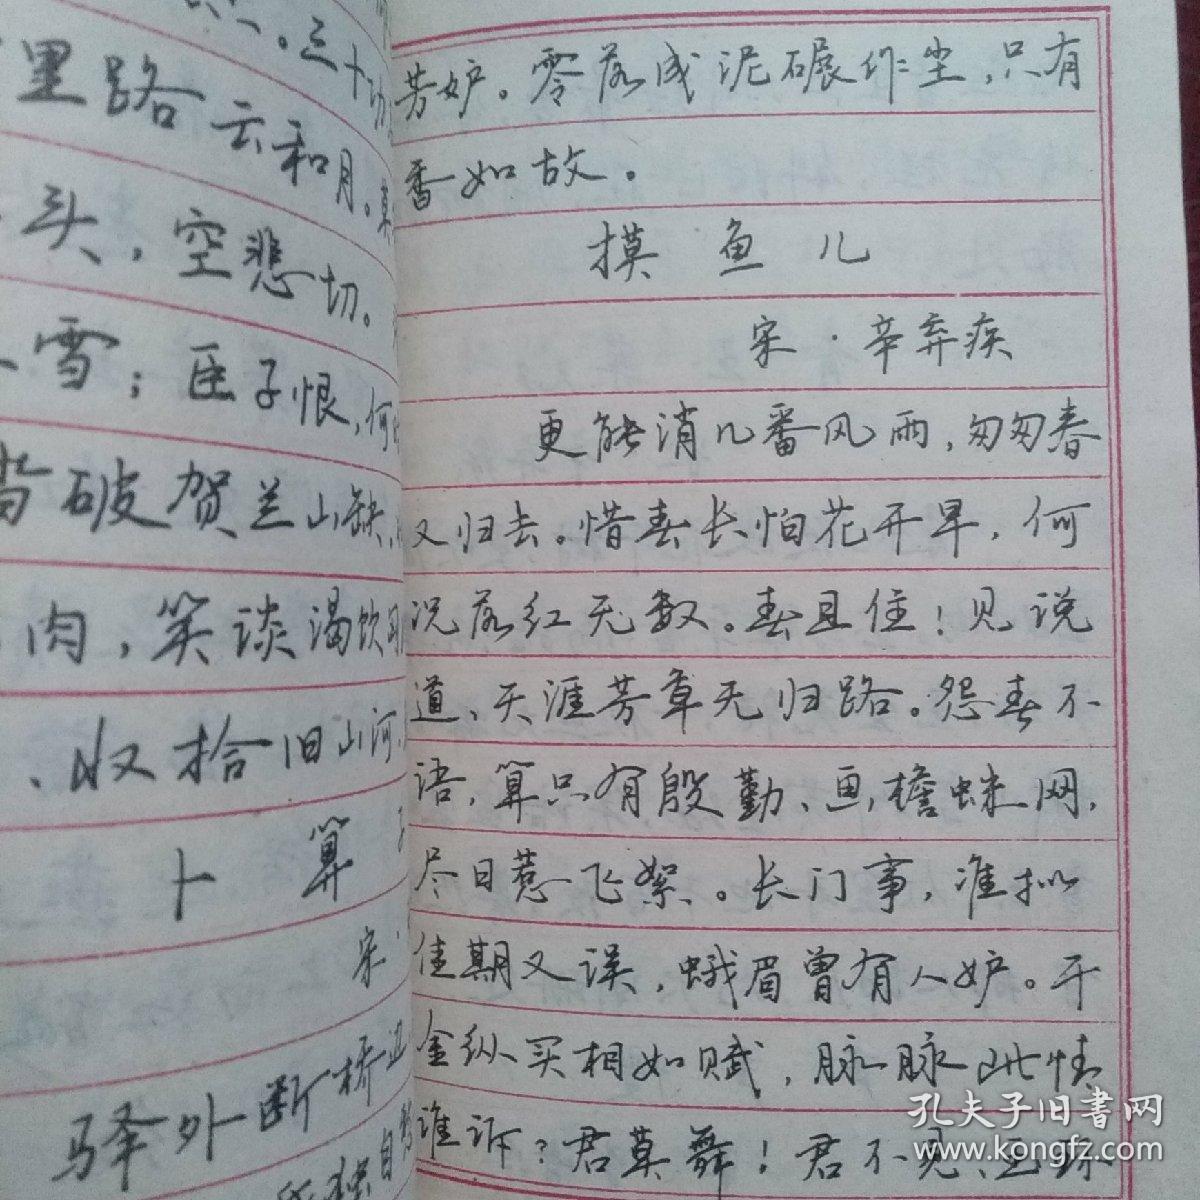 里路云和月。莫
头，空悲切。
雪；臣子恨，何
破贺兰山缺，
肉，笑谈渴饮
、收拾旧山河，
卜算
宋
驿外断桥边
芳妒。零落成泥碾作尘，只有
香如故。
摸鱼儿
宋·辛弃疾
更能消几番风雨，匆匆春
又归去。惜春长怕花开早，何
况落红无数。春且住！见说
道、天涯芳草无归路。怨春不
语，算只有殷勤、画檐蛛网，
尽日惹飞絮。长门事，准拟
佳期又误，蛾眉曾有人妒。千
金纵买相如赋，脉脉此情
谁诉？君莫舞！君不见、玉环
孔夫子旧书网
www.kongfz.com